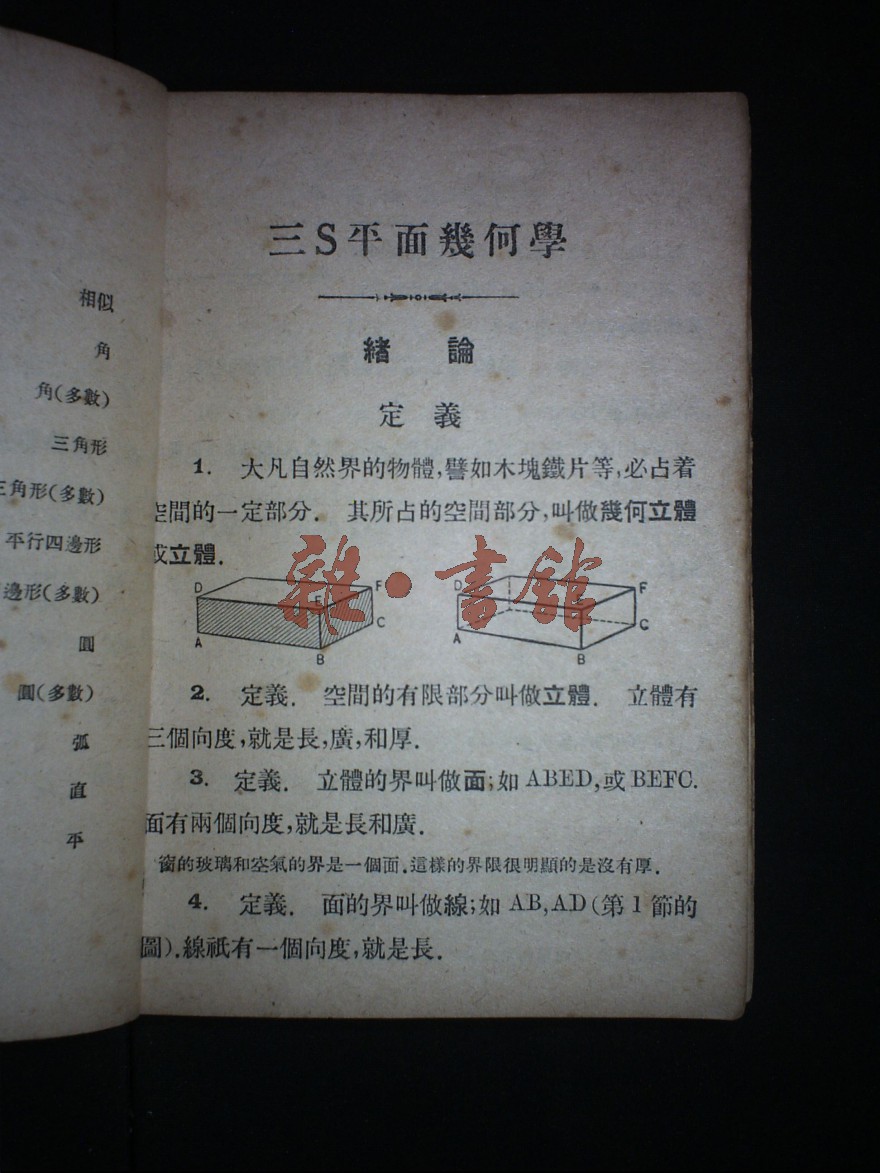 相似
角
角(多數)
三角形
三角形(多數)
平行四邊形
邊形(多數)
圓
圓(多數)
弧
直
平
三S平面幾何學
緒 論
定 義
1. 大凡自然界的物體,譬如木塊鐵片等,必占着
空間的一定部分. 其所占的空間部分,叫做幾何立體
或立體.
D E F A B C
D E F A B C
雜·書館
2. 定義. 空間的有限部分叫做立體. 立體有
三個向度,就是長,廣,和厚.
3. 定義. 立體的界叫做面;如 ABED,或 BEFC.
面有兩個向度,就是長和廣.
窗的玻璃和空氣的界是一個面.這樣的界限很明顯的是沒有厚.
4. 定義. 面的界叫做線;如 AB,AD(第1節的
圖).線祇有一個向度,就是長.